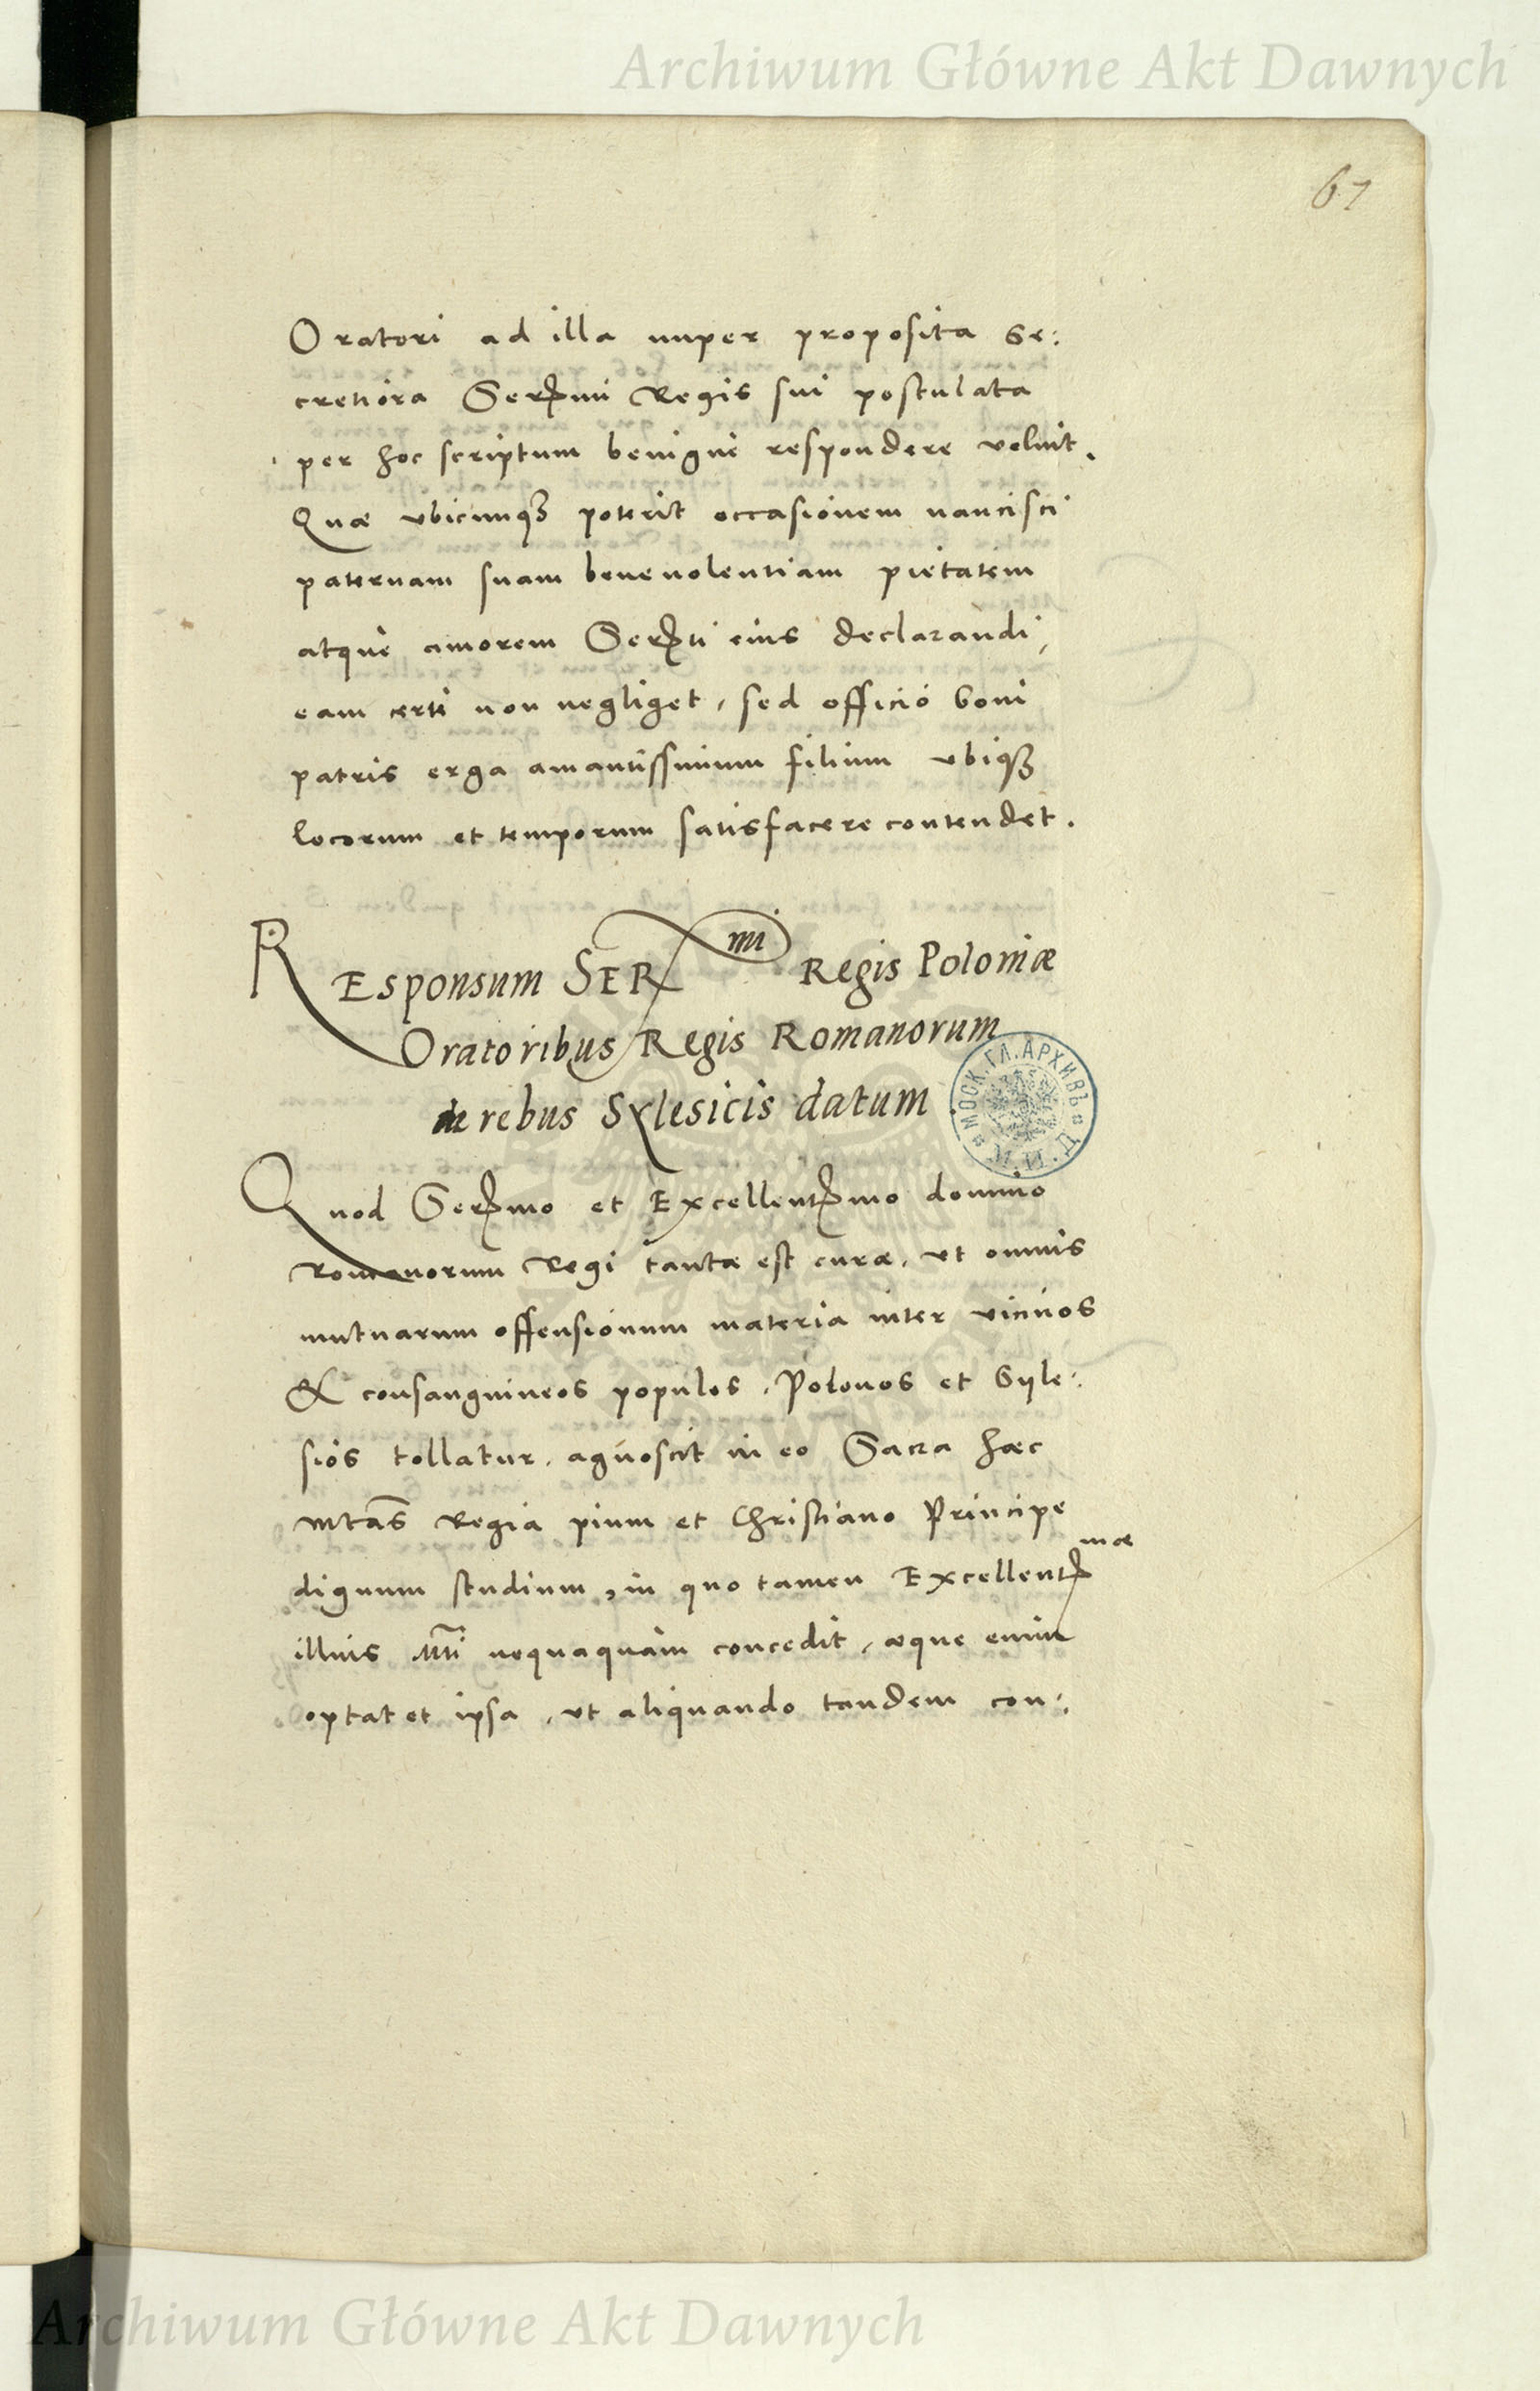 Archiwum Główne Akt Dawnych
67
Oratori ad illa nuper proposita se:
cretiora Ser̃mi Regis sui postulata
per hoc scriptum benignè respondere voluit.
Quæ vbicunqꝫ poterit occasionem nancisci
paternam suam beneuolentiam pietatem
atque amorem Ser̃ti eius declarandi,
eam certè non negliget, sed officio boni
patris erga amantissimum filium vbiqꝫ
locorum et temporum satisfacere contendet.
REsponsum SERmi Regis Poloniæ
Oratoribus Regis Romanorum
de rebus Sylesicis datum
МОСК. ГЛ. АРХИВЪ
Quod Ser̃mo et Excellent̃mo domino
Romanorum Regi tantæ est curæ, vt omnis
mutuarum offensionum materia inter vicinos
& consanguineos populos, Polonos et Syle:
sios tollatur, agnoscit in eo Sacra hæc
Mtas Regia pium et Christiano Principe
dignum studium, in quo tamen Excellentmæ
illius Mti nequaquam concedit, æque enim
optat et ipsa, vt aliquando tandem con:
Archiwum Główne Akt Dawnych